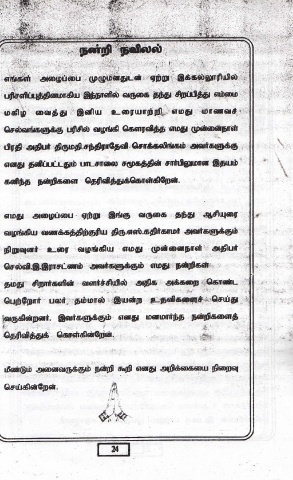 நன்றி நவிலல்
எங்கள் அழைப்பை முழுமனதுடன் ஏற்று இக்கல்லூரியில்
பரிசளிப்புத்தினமாகிய இந்நாளில் வருகை தந்து சிறப்பித்து எம்மை
மகிழ வைத்து இனிய உரையாற்றி எமது மாணவச்
செல்வங்களுக்கு பரிசில் வழங்கி கௌரவித்த எமது முன்னைநாள்
பிரதி அதிபர் திருமதி.சந்திராதேவி சொக்கலிங்கம் அவர்களுக்கு
எனது தனிப்பட்டதும் பாடசாலை சமூகத்தின் சார்பிலுமான இதயம்
கனிந்த நன்றிகளை தெரிவித்துக்கொள்கிறேன்.
எமது அழைப்பை ஏற்று இங்கு வருகை தந்து ஆசியுரை
வழங்கிய வணக்கத்திற்குரிய திரு.எஸ்.கதிர்காமர் அவர்களுக்கும்
நிறுவுனர் உரை வழங்கிய எமது முன்னைநாள் அதிபர்
செல்வி.இ.இராசட்ணம் அவர்களுக்கும் எமது நன்றிகள்
தமது சிறார்களின் வளர்ச்சியில் அதிக அக்கறை கொண்ட
பெற்றோர் பலர் தம்மால் இயன்ற உதவிகளைச் செய்து
வருகின்றனர். இவர்களுக்கும் எனது மனமார்ந்த நன்றிகளைத்
தெரிவித்துக் கொள்கின்றேன்.
மீண்டும் அனைவருக்கும் நன்றி கூறி எனது அறிக்கையை நிறைவு
செய்கின்றேன்.
24